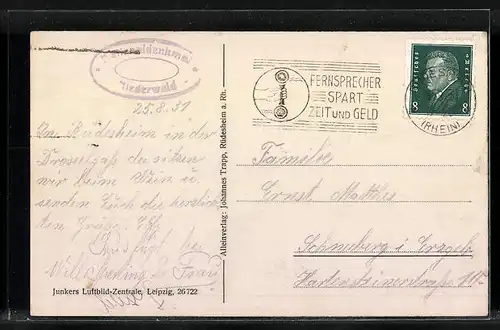 Nationaldenkmal
Niederwald
25.8.31
In Rüdesheim in der
Drosselgaß da sitzen
wir beim Wein u.
senden Euch die herzlich-
sten Grüße.
Willi
Frau
Junkers Luftbild-Zentrale, Leipzig, 26722
Alleinverlag: Johannes Trapp, Rüdesheim a. Rh.
FERNSPRECHER
SPART
ZEIT UND GELD
(RHEIN)
Deutsches Reich
8 8
Familie
Ernst Matthes
Schneeberg i. Erzgeb.
Hartensteinerstraße